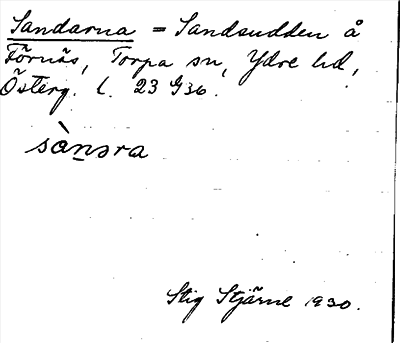 Sandarna = Sandsudden å
Förnäs, Torpa sn, Ydre hd,
Österg. l. 23 G36.
sànəra
Stig Stjärne 1930.